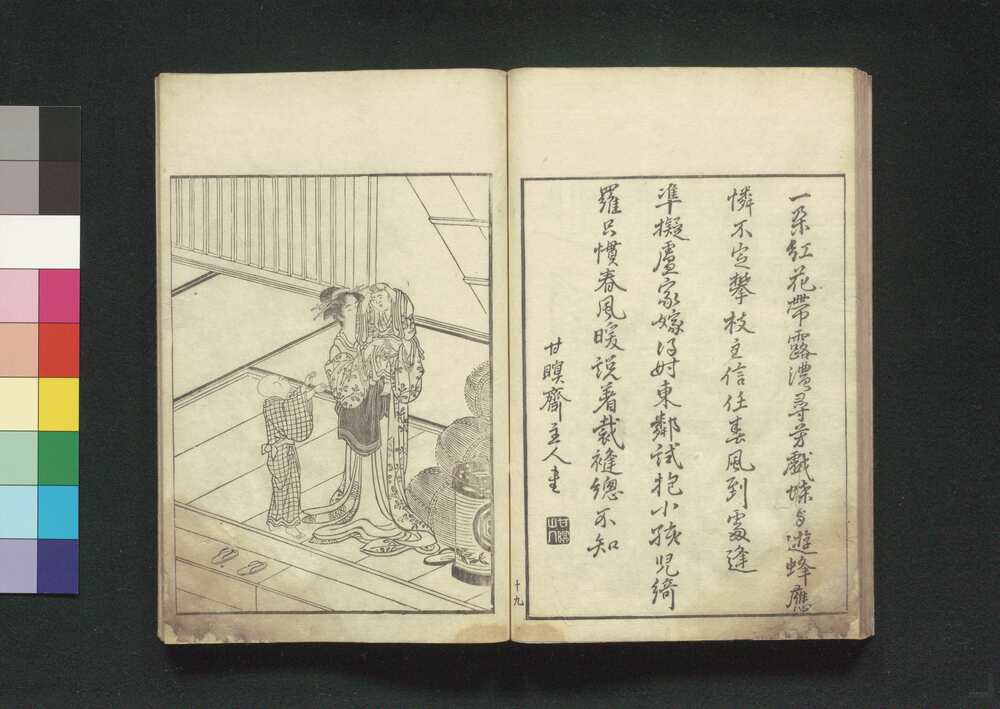 一朶紅花帯露濃尋芳戯蝶与遊蜂應
憐不定攀枝主信任春風到處逢
準擬盧家嫁得時東鄰試抱小孩児綺
羅只慣春風暖説着裁縫總不知
甘瞑齋主人書
十九